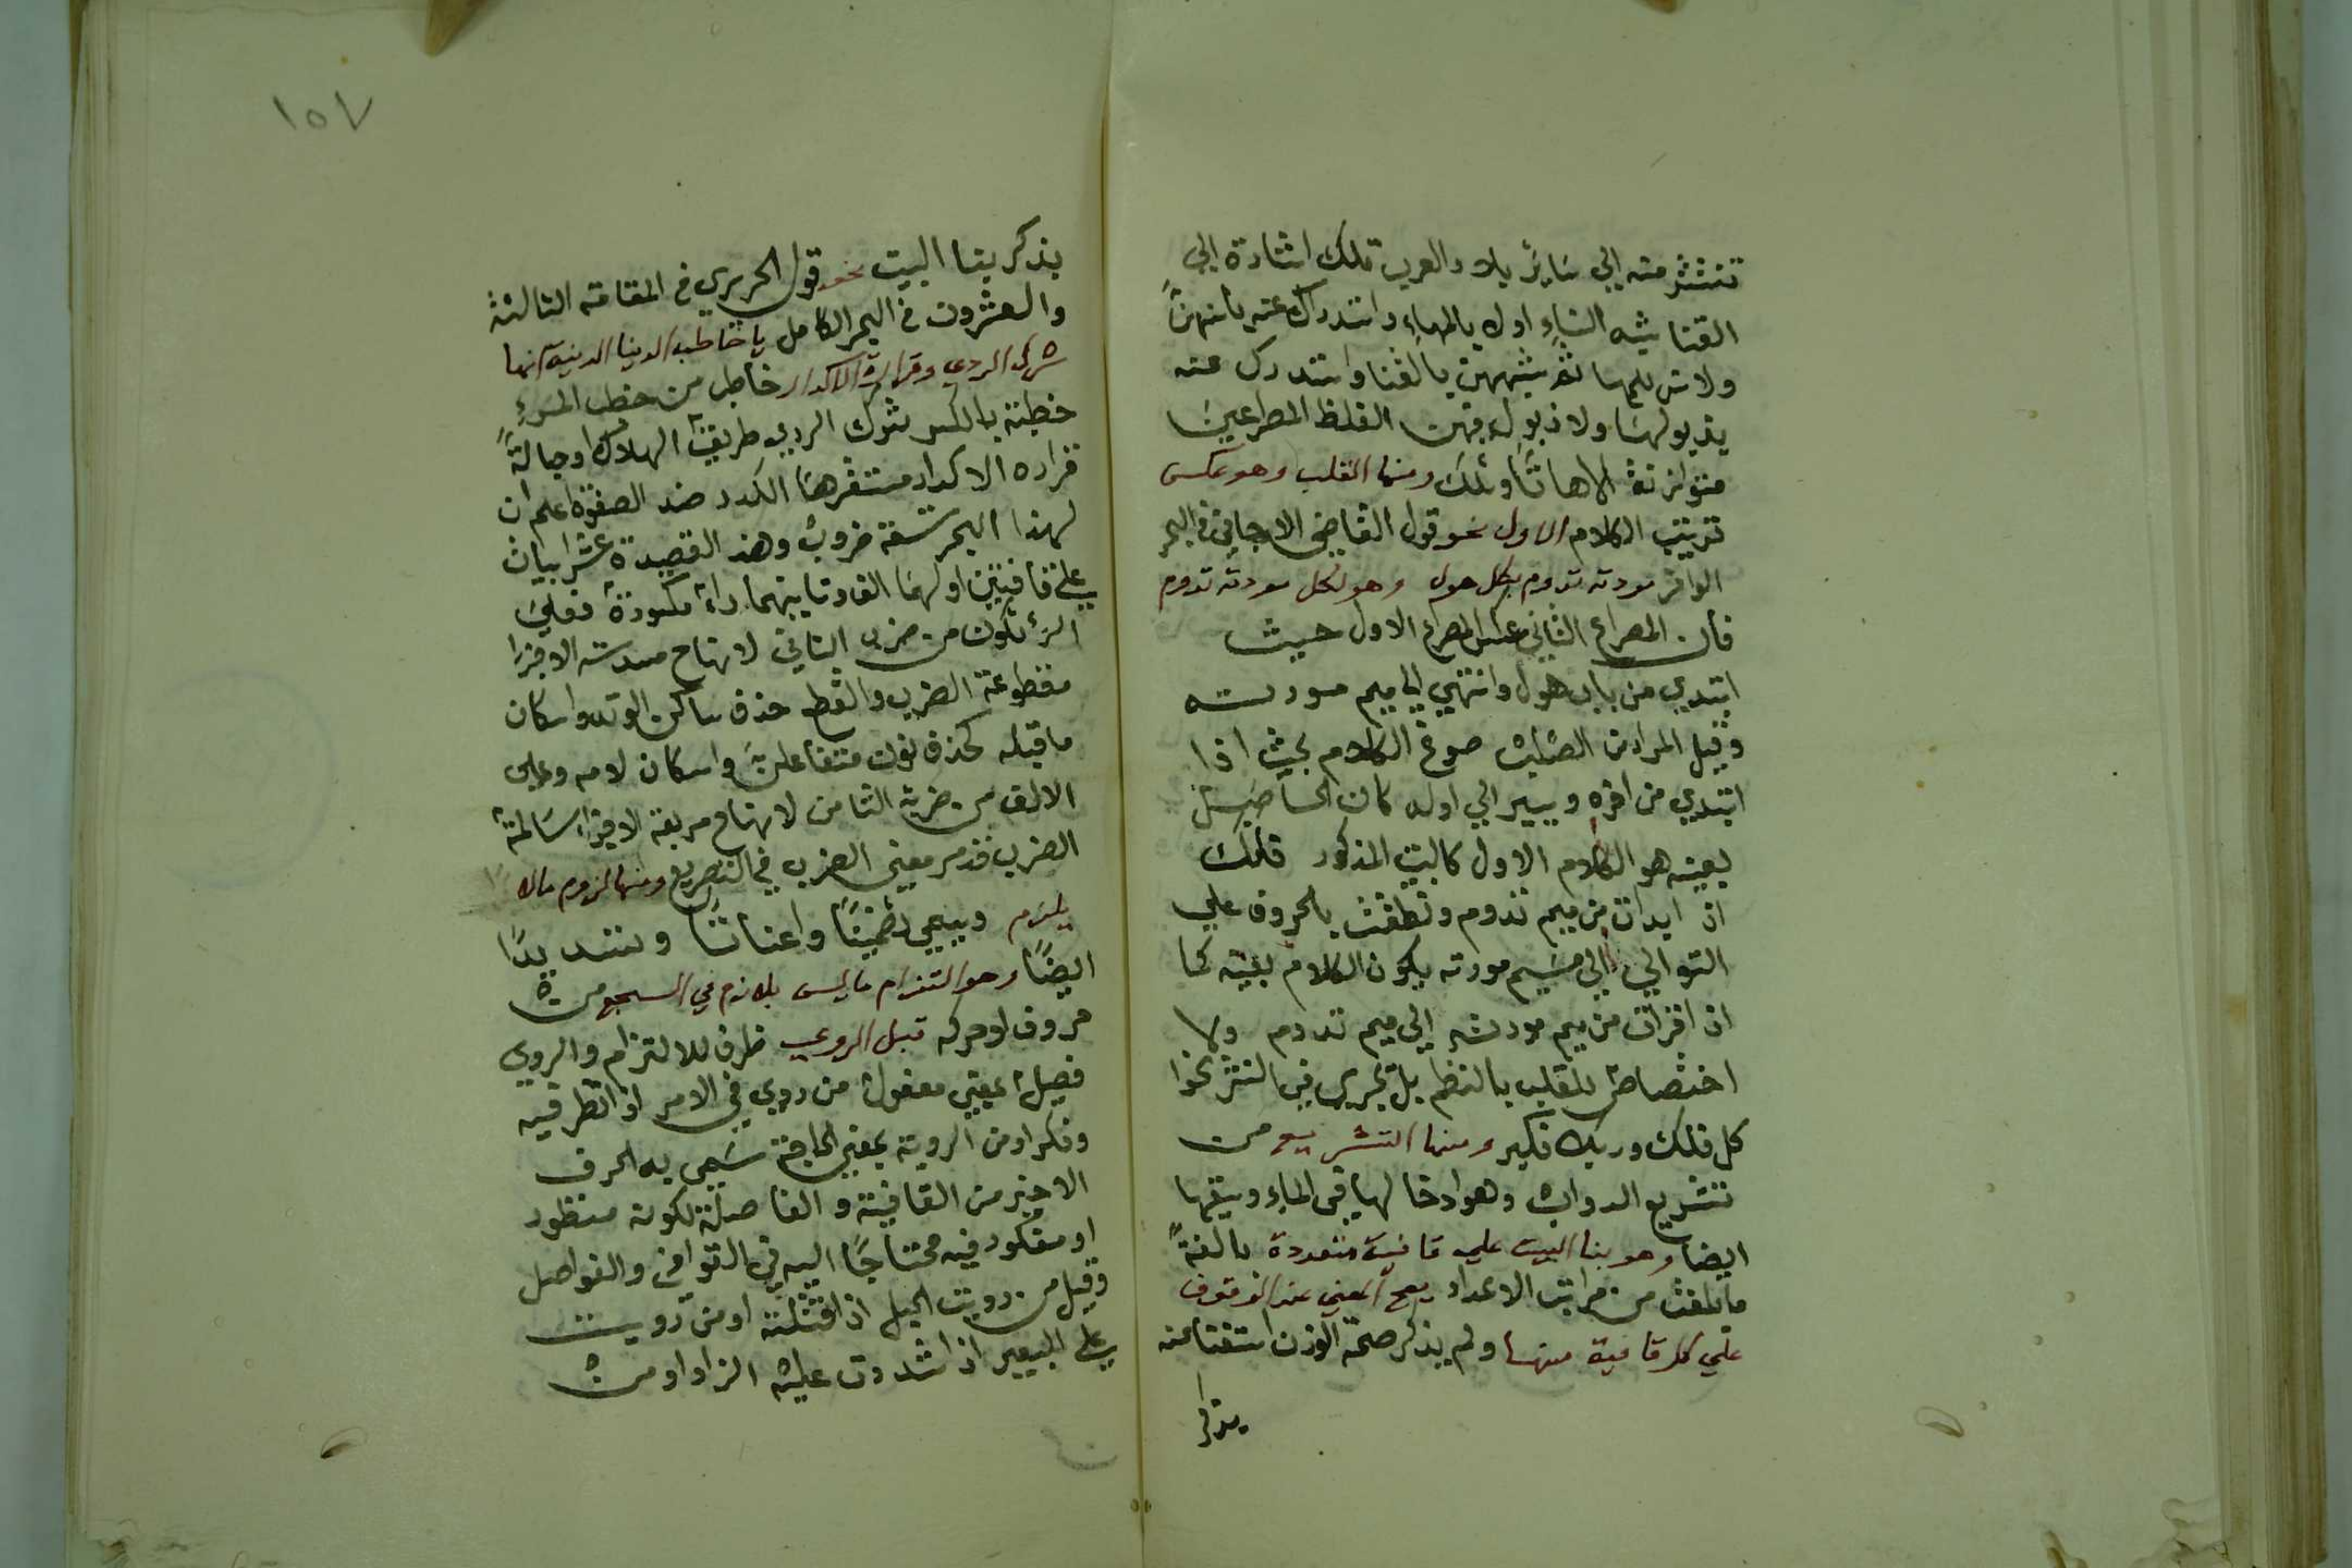 تنتشر منه الي سَاير بلاد العرب تلك اشارة الي
القنا شبه النساءِ اولا بالمهاءِ واستدرك عنه بأنهنّ
ولانس للمها ثم شبههن بالقنا واستدرك عنه
بذبولها ولا ذبول فهن الفلظ المصراعين
متوازنة الاهاتا وتلك ومنها القلب وهو عكس
ترتيب الكلام الاول نحو قول القاضي الارجاني في البحر
الوافر مودته تدوم لكل هول وهو لكل مودته تدوم
فان المصراع الثاني عكس المصراع الاول حيث
ابتدي من باب هول وانتهي الي ميم مودته
وقيل المراد من القلب صوغ الكلام بحيث اذا
ابتدي من اخره ويسير الي اوله كان الحاصل
بعينه هو الكلام الاول كالبيت المذكور فلك
ان ابدات من ميم تدوم ونطقت بالحروف علي
التوالي الي ميم مودته يكون الكلام بعينه كما
ان اقرات من ميم مودته الي ميم تدوم ولا
اختصاص للقلب بالنظم بل يجري في النثر نحوا
كل فلك وربك فكبر ومنها التشريع من
تشريع الدواب وهو ادخالها في الماء ويسقيها
ايضا وهو بنا البيت علي قافية متعددة بالغةً
ما بلغت من مراتب الاعداد يصح المعني عند الوقوف
علي كل قافية منها ولم يذكر صحة الوزن استغنا عنه
يذكر
١٥٧
بذكر بنا البيت نحو قول الحريري في المقامة الثالثة
والعشرون في البحر الكامل يا خاطب الدنيا الدنية انها
شرك الردي وقرارة الاكدار خاطب من خطب المرء
خطبته بالكسر شرك الردي طريقة الهلاك وحبالةً
قراره الاكدار مستقرها الكدر ضد الصفوة اعلم ان
لهذا البحر تسعة ضروب وهذه القصيدة عشر ابيات
علي قافيتين اولهما الف وثانيهما راء مكسورة فعلي
الراء تكون من ضرب الثاني لانها ح مسدسة الاجزا
مقطوعة الضرب والقطع حذف ساكن الوتد واسكان
ما قبله كحذف نون متفاعلن واسكان لامه وعلي
الالف من ضربه الثامن لانها ح مربعة الاجزاء سَالمة
الضرب قدمر معني الضرب في التصريع ومنها لزوم مالا
يلزم ويسمي تضمينًا واعناتًا وتشديدًا
ايضًا وهو التزام ما ليس بلازم في السجع من
حروف او حركه قبل الروي ظرف للالتزام والروي
فعيل بمعني مفعول من روي في الامر اذا نظر فيه
وفكر او من الروية بمعني الحاجة سَمي به الحرف
الاخير من القافية و الفاصلة لكونه منظور
او مفكور فيه محتاجًا اليه في القوافي والفواصل
وقيل من رويت الحبل اذا فتلته او من رويت
علي البعير اذا شددت عليه الزاد او من